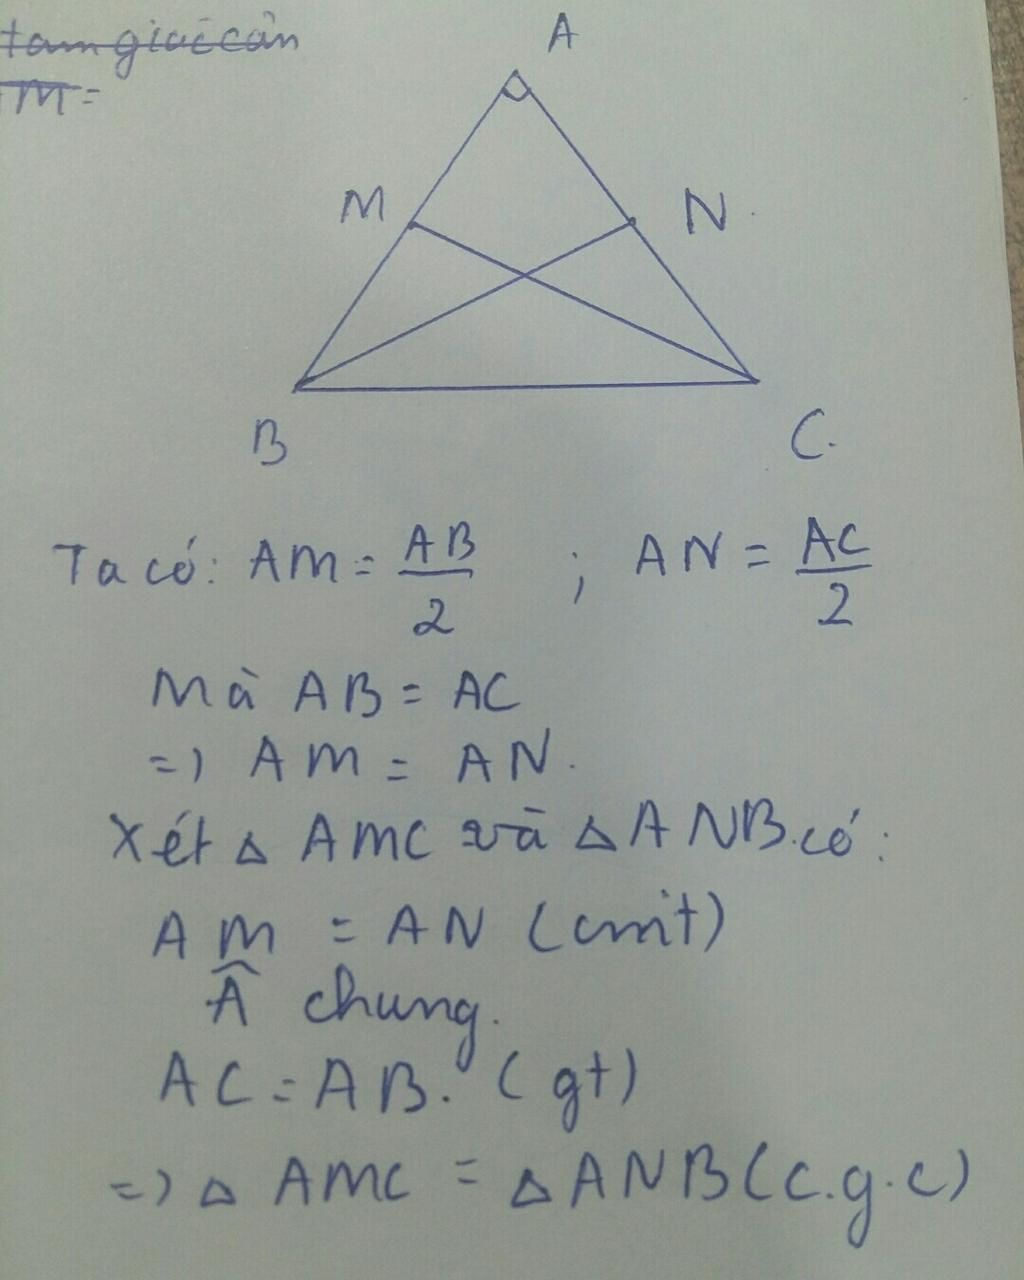 tam giác cân
M =
A
M N
B C
Ta có: AM = AB/2 ; AN = AC/2
Mà AB = AC
=> AM = AN.
Xét Δ AMC và Δ ANB có:
AM = AN (cmt)
Â chung.
AC = AB. (gt)
=> Δ AMC = Δ ANB (c.g.c)